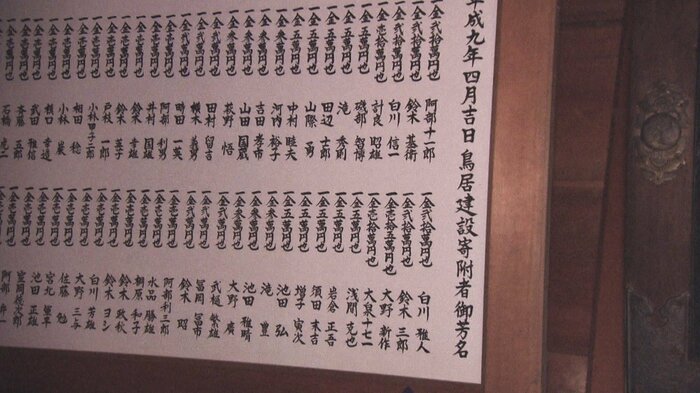 平成九年四月吉日 鳥居建設寄附者御芳名
一金弐拾萬円也 阿部十一郎
一金弐拾萬円也 鈴木 基術
一金弐拾萬円也 白川 信一
一金壱拾萬円也 計良 昭雄
一金五萬円也 磯部 智博
一金五萬円也 滝 秀則
一金五萬円也 田辺 士郎
一金五萬円也 山際 勇
一金五萬円也 中村 睦夫
一金参萬円也 河内 裕子
一金参萬円也 吉田 孝市
一金参萬円也 山田 国蔵
一金参萬円也 荻野 悟
一金弐萬円也 田村 留吉
一金弐萬円也 槇木 義勇
一金弐萬円也 時田 一英
一金壱萬円也 阿部 利男
一金壱萬円也 井村 国雄
一金壱萬円也 鈴木 幸雄
一金壱萬円也 鈴木 五子
一金壱萬円也 戸枝 一郎
一金壱萬円也 小林甲子二郎
一金壱萬円也 相田 稔
一金壱萬円也 小林 巌
一金壱萬円也 横口 幸道
一金壱萬円也 武田 雅信
一金壱萬円也 斉藤 五郎
一金壱萬円也 石橋
一金弐拾萬円也 白川 雅人
一金弐拾萬円也 鈴木 三郎
一金壱拾五萬円也 大野 新作
一金壱拾萬円也 大泉十七一
一金五萬円也 浅間 克也
一金五萬円也 岩倉 正吾
一金五萬円也 須田 末吉
一金五萬円也 増子 寅次
一金五萬円也 池田 弘
一金参萬円也 滝 豊
一金参萬円也 池田 雅晴
一金参萬円也 大野 廣
一金弐萬円也 武樋 繁雄
一金弐萬円也 冨岡 冨市
一金弐萬円也 鈴木 昭
一金壱萬円也 阿部利三郎
一金壱萬円也 水品 勝雄
一金壱萬円也 桐原 和子
一金壱萬円也 鈴木 政秋
一金壱萬円也 鈴木 ヨシ
一金壱萬円也 白川 芳雄
一金壱萬円也 大野 三与
一金壱萬円也 佐藤 勉
一金壱萬円也 宮北 軍平
一金壱萬円也 池田 正雄
一金壱萬円也 室岡徳次郎
一金壱萬円也 阿部